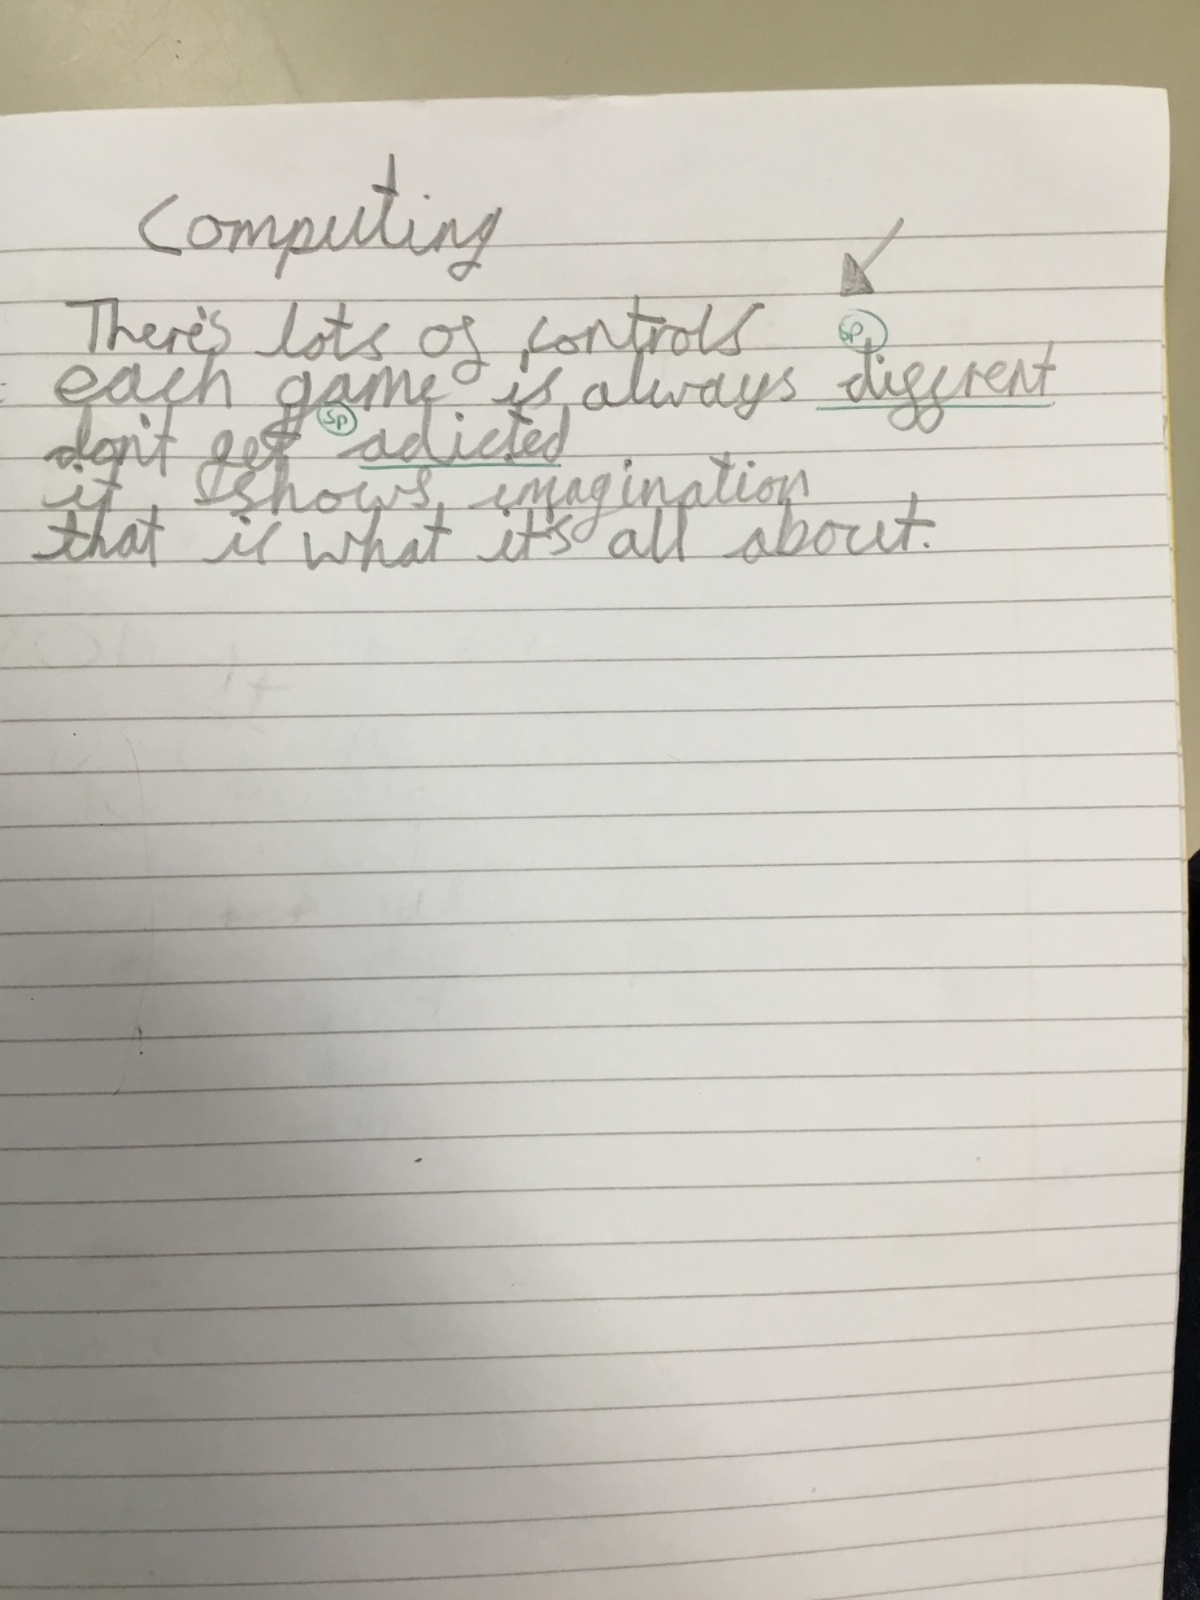 Computing
There's lots of controls sp
each game is always diffrent
don't get sp adicted
it shows imagination
that is what it's all about.